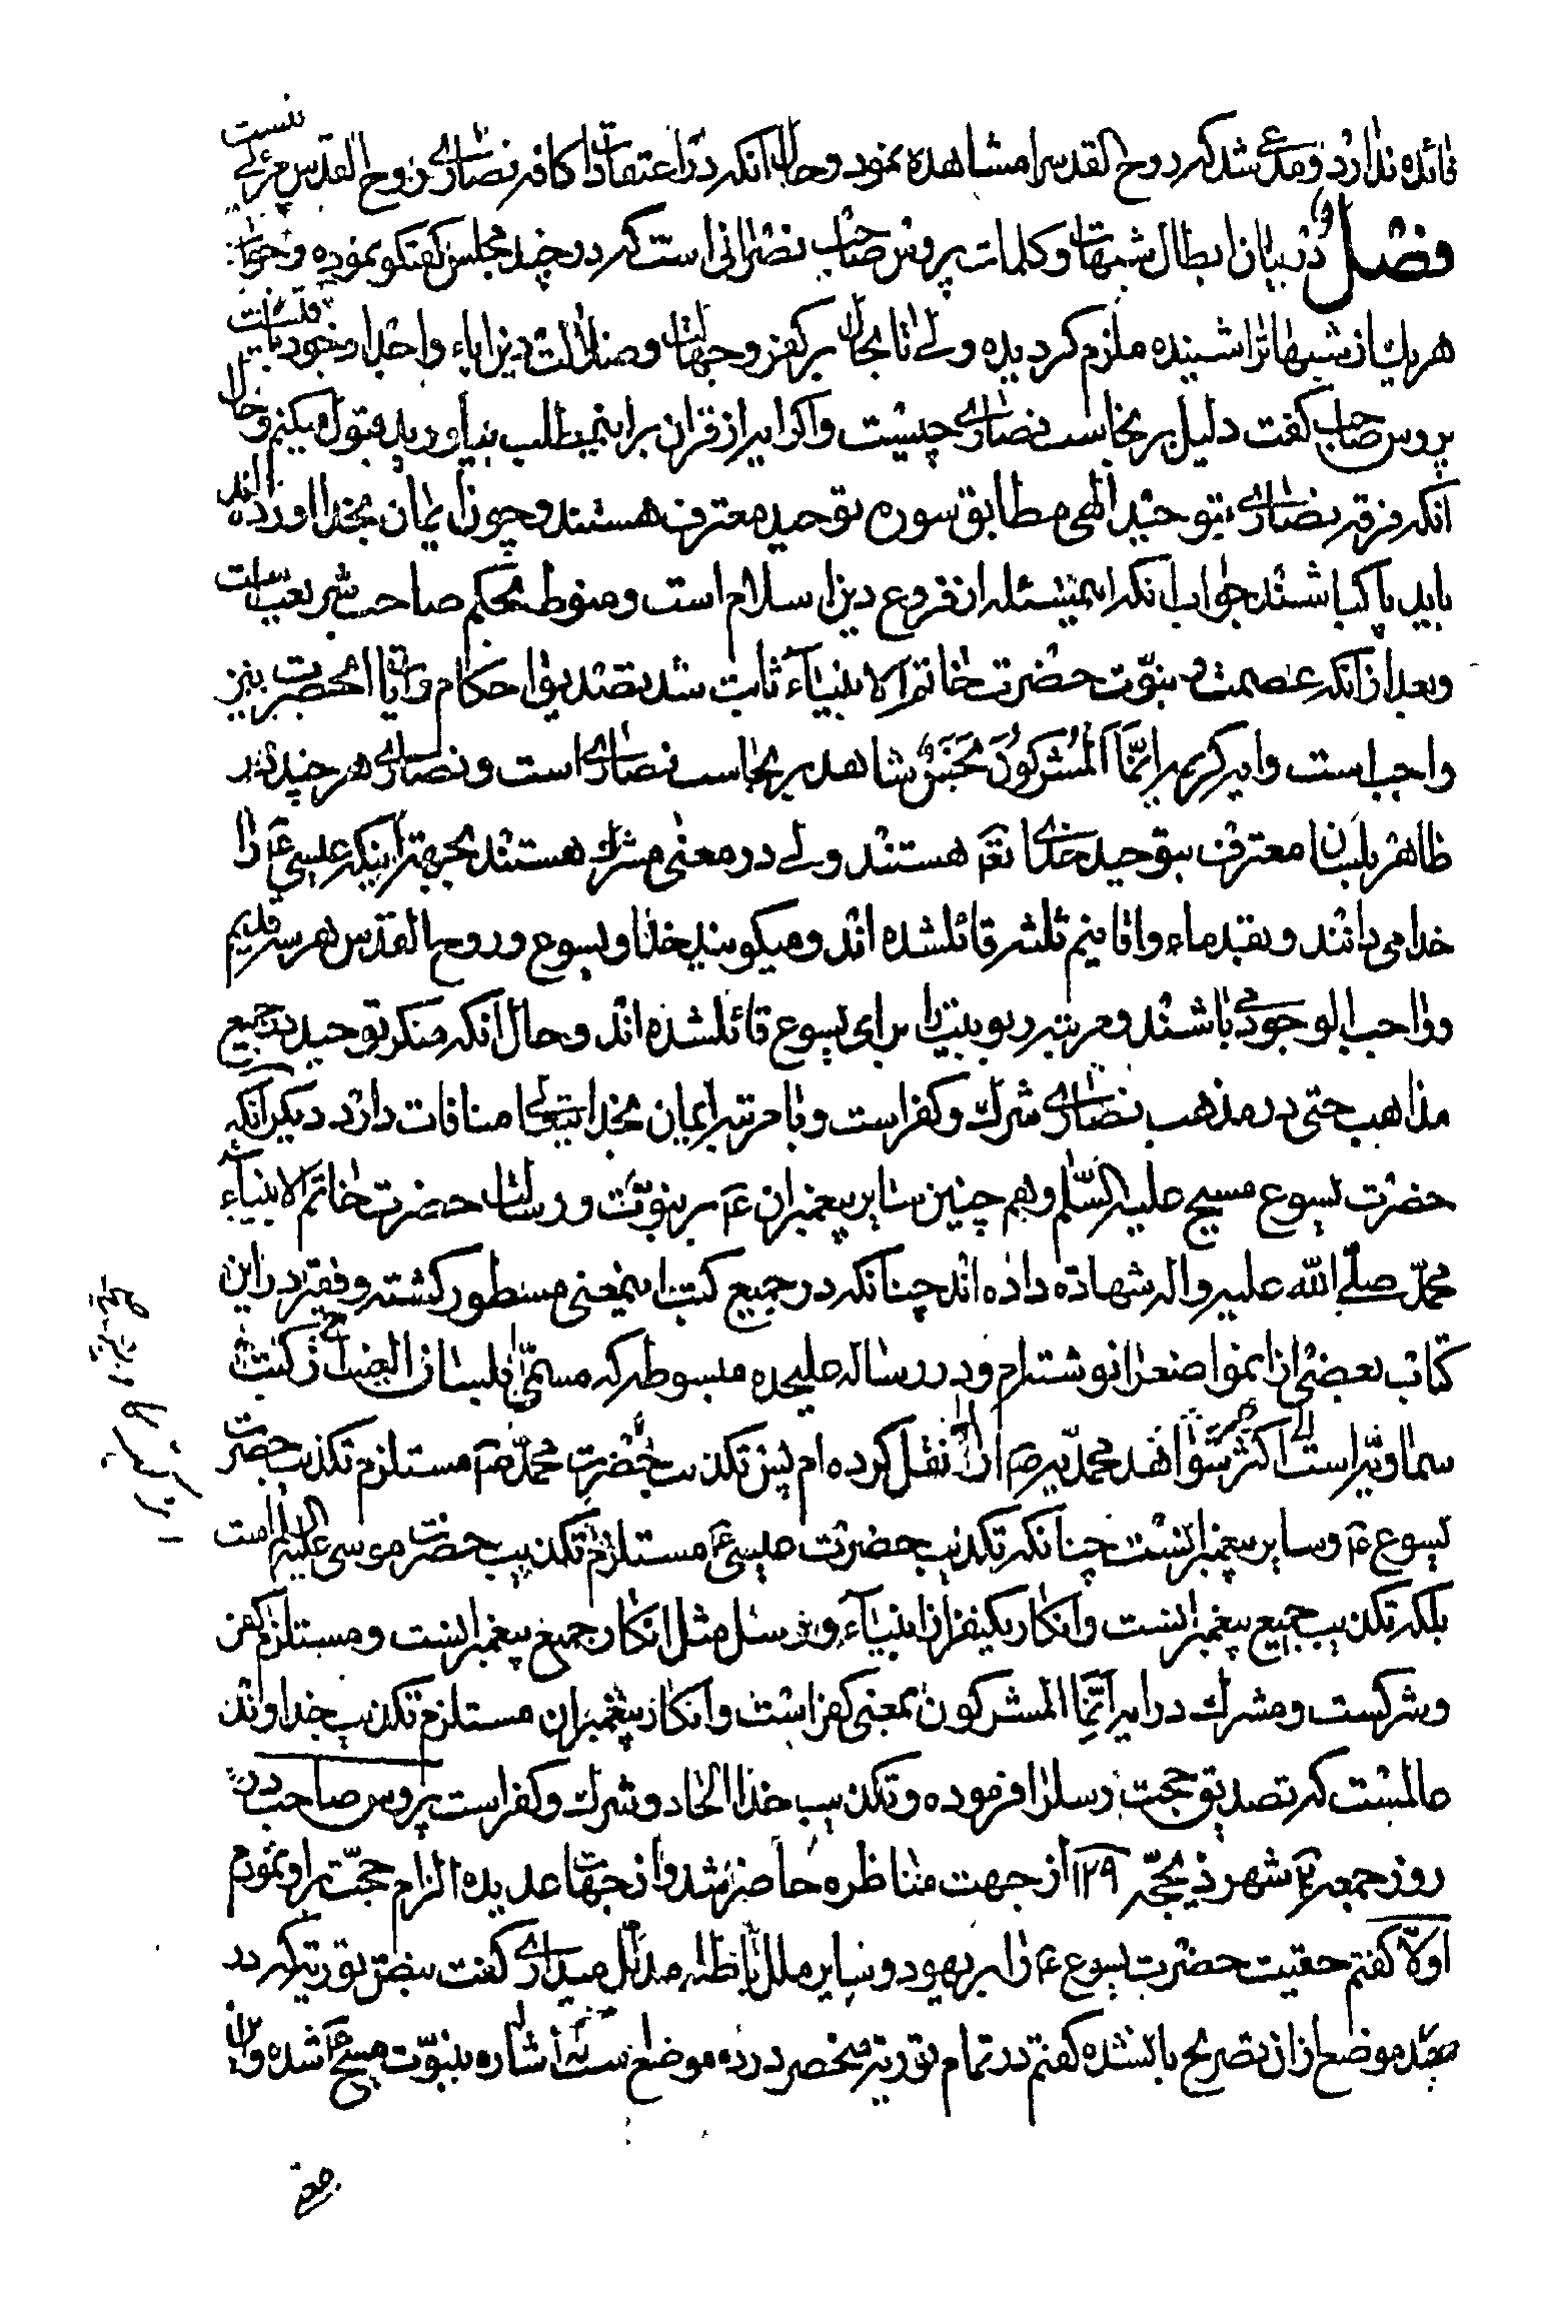 فائده ندارد و مدعی شد که روح القدس را مشاهده نمود و حال آنکه در اعتقادات کافه نصاری روح القدس مرئی نیست
فصل در بیان ابطال شبهات و کلمات پروس صاحب نصرانی است که در چند مجلس گفتگو نموده و جواب
هر یک از شبهات را شنیده ملزم گردیده ولی تا بحال بر کفر و جهالت و ضلالت دین اباء و اجداد خود باقیست
پروس صاحب گفت دلیل بر نجاست نصاری چیست و اگر ایه از قران بر اینمطلب بیاورید قبول میکنم و حال
انکه فرقه نصاری بتوحید الهی مطابق سوره توحید معترف هستند و چون ایمان بخدا اورده اند
باید پاک باشند جواب انکه اینمسئله از فروع دین اسلام است و منوط بحکم صاحب شریعت است
و بعد از آنکه عصمت و نبوّت حضرت خاتم الانبیآء ثابت شد تصدیق احکام و ایات انحضرت نیز
واجب است و ایه کریمه اِنَّمَا اَلْمُشرِکُونَ نَجَسٌ شاهد بر نجاست نصاری است و نصاری هر چند در
ظاهر بلسان معترف بتوحید خدای تعم هستند ولی در معنی مشرک هستند بجهة اینکه عیسی ع را
خدا می دانند و بقدماء و اقانیم ثلثه قائلشده اند و میگویند خدا و یسوع و روح القدس هر سه قدیم
و واجب الوجود می باشند و مرتبه ربوبیت را برای یسوع قائلشده اند و حال انکه منکر توحید در جمیع
مذاهب حتی در مذهب نصاری شرک و کفر است و با مرتبه ایمان بخدایتعالی منافات دارد دیگر انکه
حضرت یسوع مسیح علیه السّلم و هم چنین سایر پیغمبران ع بر نبوّت و رسالت حضرت خاتم الانبیآء
محمّد صلّی الله علیه واله شهادة داده اند چنانکه در جمیع کتب اینمعنی مسطور گشته و فقیر در این
کتاب بعضی از اینمواضع را نوشته ام و در رساله علیحده مبسوطه که مسمّی بلسان الحق از کتب
سماویّه است اکثر شواهد محمّدیه ص انرا نقل کرده ام پس تکذیب حضرت محمّد ص مستلزم تکذیب حضرت
یسوع ع و سایر پیغمبرانست چنانکه تکذیب حضرت عیسی ع مستلزم تکذیب حضرت موسی علیه السلام است
بلکه تکذیب جمیع پیغمبرانست و انکار یکنفر از انبیآء و رسل مثل انکار جمیع پیغمبرانست و مستلزم کفر
و شرکست و مشرک در ایه انّما المشرکون بمعنی کفر است و انکار پیغمبران مستلزم تکذیب خداوند
عالمست که تصدیق حجت رسل را فرموده و تکذیب خدا الحاد و شرک و کفر است پروس صاحب در
روز جمعه شهر ذیحجّه از جهت مناظره حاضر شد و از جهات عدیده الزام حجّت بر او نمودم
اولاً گفتم حقیت حضرت یسوع ع را بر یهود و سایر ملل باطله مدلل میداری گفت بنص توریة که در
چند موضع از ان تصریح بانشده گفتم در تمام توریة منحصر در ده موضع است که اشاره بنبوّت مسیح ع شده و ان